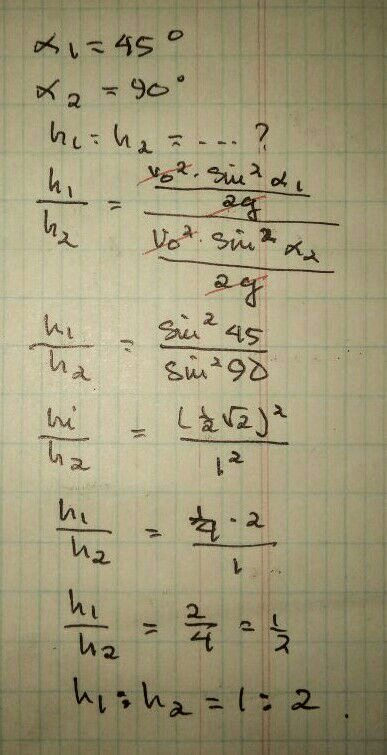 α₁ = 45°
α₂ = 90°
h₁ : h₂ = .... ?
h₁/h₂ = (v₀² · sin² α₁ / 2g) / (v₀² · sin² α₂ / 2g)
h₁/h₂ = sin² 45 / sin² 90
h₁/h₂ = (½√2)² / 1²
h₁/h₂ = ¼ · 2 / 1
h₁/h₂ = 2/4 = ½
h₁ : h₂ = 1 : 2 .